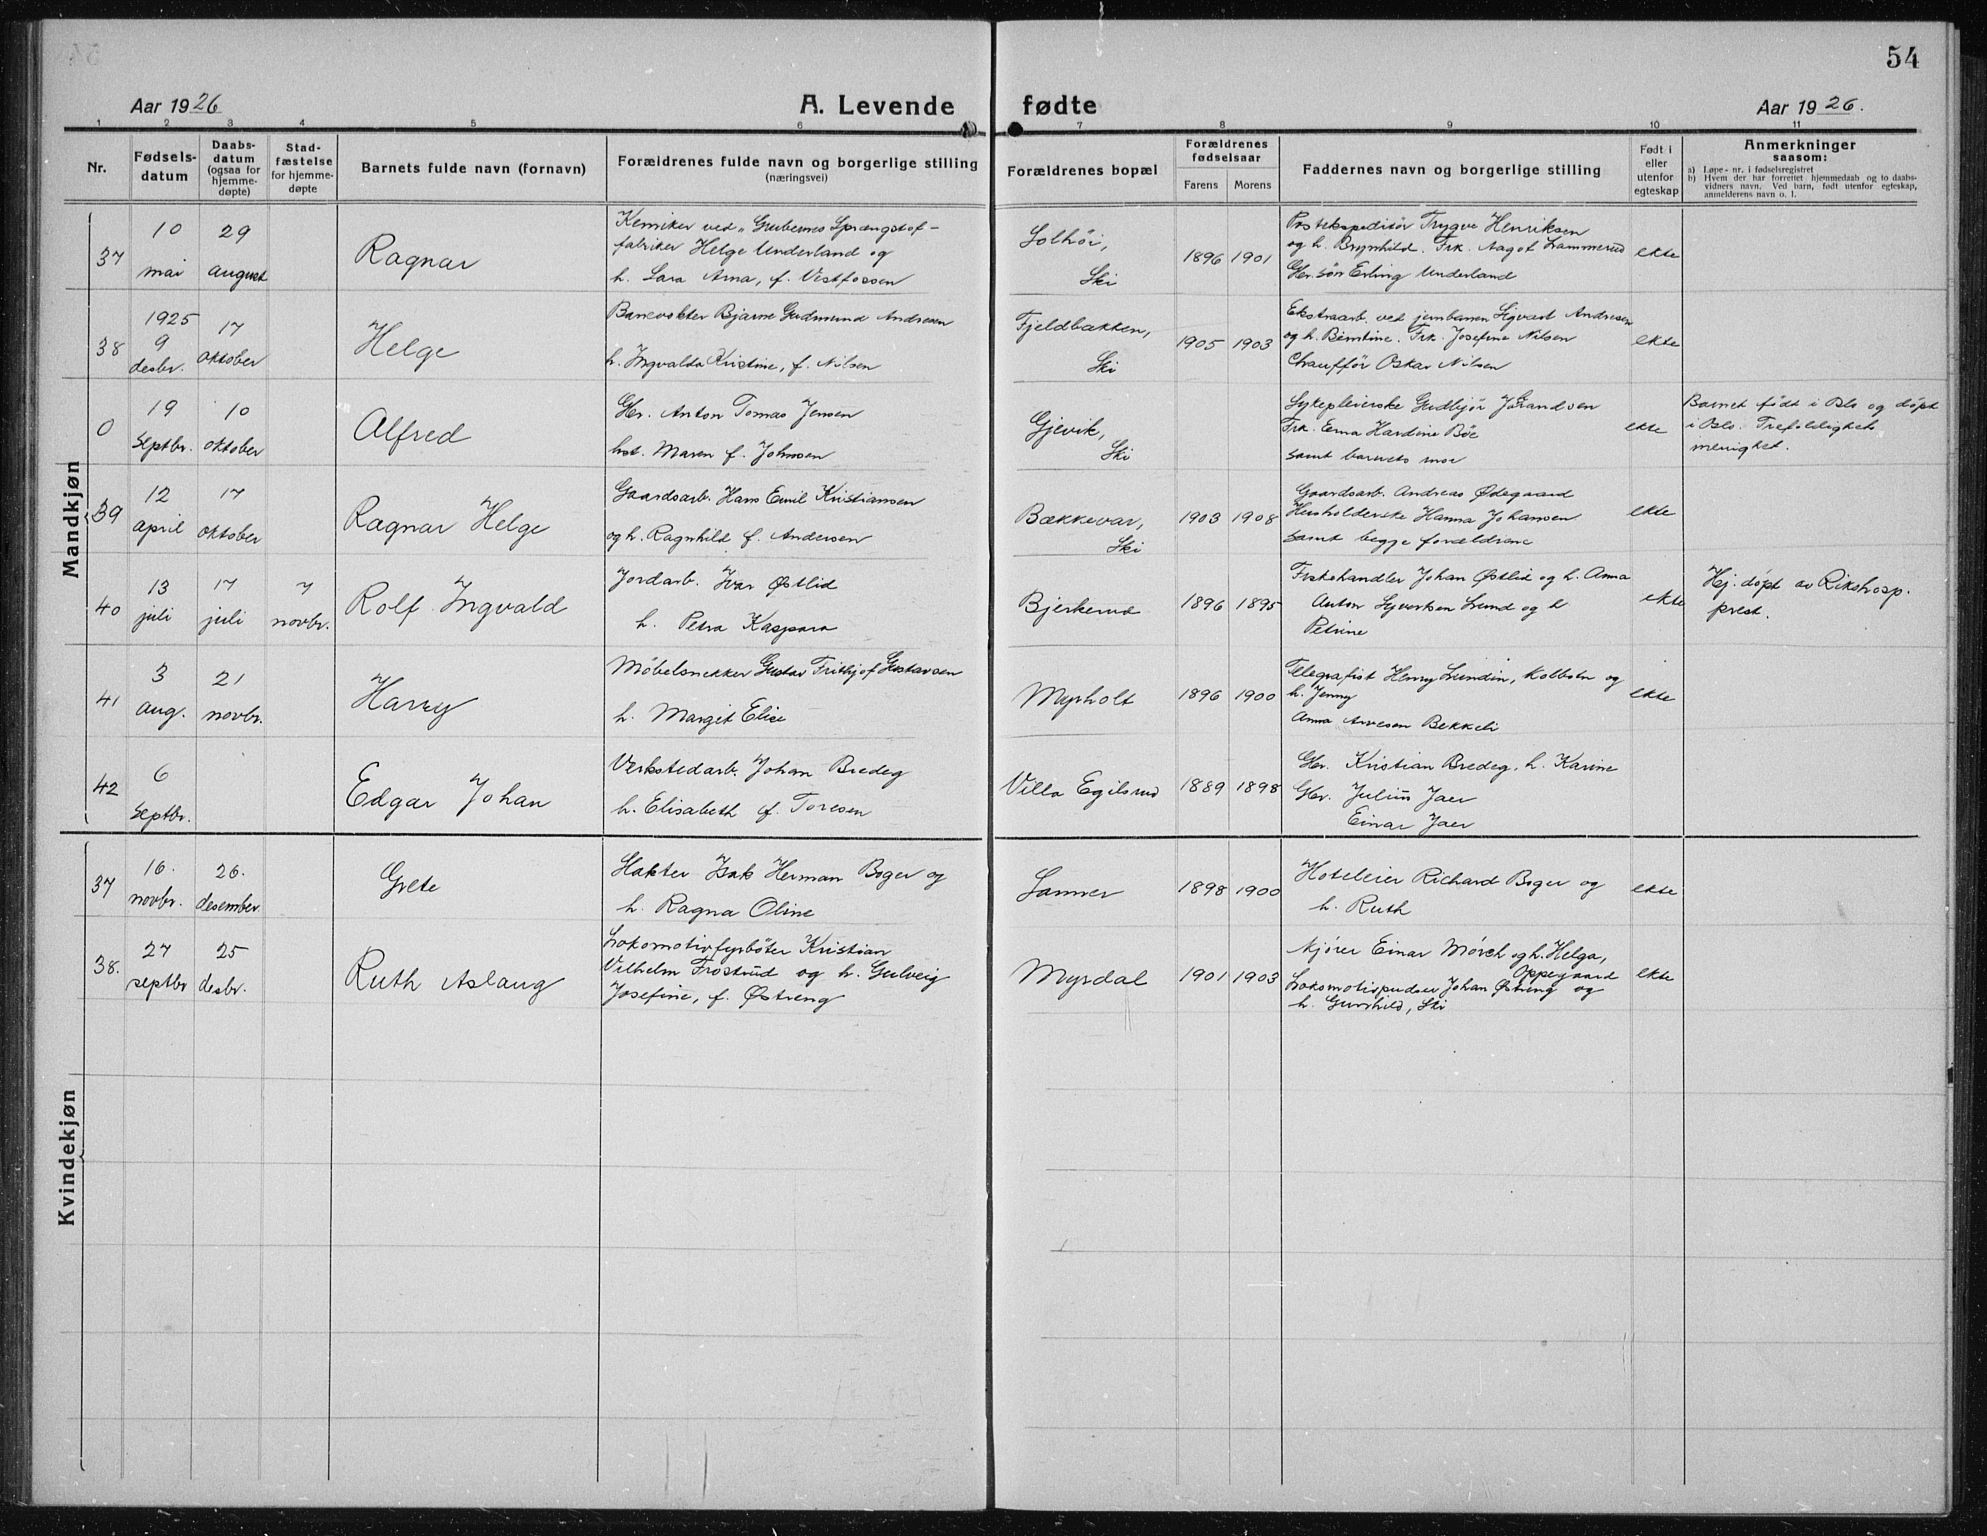 54
Aar 1926
A. Levende fødte
Aar 1926.
1 2 3 4 5 6 7 8 9 10 11
Nr.
Fødsels-
datum
Daabs-
datum
(ogsaa for
hjemme-
døpte)
Stad-
fæstelse
for hjemme-
døpte
Barnets fulde navn (fornavn)
Forældrenes fulde navn og borgerlige stilling
(næringsvei)
Forældrenes bopæl
Forældrenes
fødselsaar
Farens Morens
Faddernes navn og borgerlige stilling
Født i
eller
utenfor
egteskap
Anmerkninger
saasom:
a) Løpe-nr. i fødselsregistret
b) Hvem der har forrettet hjemmedaab og to daabs-
vidners navn. Ved barn, født utenfor egteskap,
anmelderens navn o. l.
Mandkjøn
37
10
mai
29
august
Ragnar
Kemiker ved "Grubernes Sprængstof-
fabriker Helge Underland og
h. Sara Arna, f. Vestfossen
Solhöi,
Ski
1896 1901
Postekspeditör Trygve Henriksen
og h. Brynhild. Frk. Aagot Lammerud
Gbr. sön Erling Underland
ekte
38
1925
9
desbr.
17
oktober
Helge
Banevokter Bjarne Gudmund Andresen
h. Ingvalda Kristine, f. Nilsen
Fjeldbækken,
Ski
1905 1903
Ekstraarb. ved jernbanen Sigvart Andresen
og h. Berntine. Frk. Josefine Nilsen
Chauffør Oskar Nilsen
ekte
0
19
Septbr.
10
oktober
Alfred
Gbr. Anton Tomas Jensen
hst. Maren f. Johnsen
Gjevik,
Ski
Sykepleierske Gudbjør
Frk. Erna Hardine Böe
samt barnets mor
ekte
Barnet født i Oslo og döpt
i Oslo. Trefoldighets
menighet.
39
12
april
17
oktober
Ragnar Helge
Gaardsarb. Hans Emil Kristiansen
og h. Ragnhild f. Andersen
Bækkevar,
Ski
1903 1908
Gaardsarb. Andreas Ødegaard
Husholderske Hanna Johansen
samt begge forældrene
ekte
40
13
juli
17
juli
7
novbr.
Rolf Ingvald
Jordarb. Ivar Østlid
h. Petra Kaspara
Bjerkerud
1896 1895
Fiskehandler Johan Østlid og h. Anna
Anton Syvertsen Lund og h
Petrine
ekte
Hj. döpt av Rikshosp.
prest.
41
3
aug.
21
novbr.
Harry
Möbelsnekker Gustav Frithjof Gustavsen
h. Margit Elise
Myrholt
1896 1900
Telegrafist Henry Lundin, Kolbotn og
h. Jenny
Anna Arvesen Bekkeli
ekte
42
6
Septbr.
Edgar Johan
Verkstedarb. Johan Bredeg
h. Elisabeth f. Toresen
Villa Egilsrud
1889 1898
Gbr. Kristian Bredeg, h. Karine
Gbr. Julius Jaer
Einar Jaer
Kvindekjøn
37
16.
novbr.
26.
desember
Grete
Isak Herman Boger og
h. Ragna Oline
Sanner
1898 1900
Hoteleier Richard Boger og
h. Ruth
ekte
38.
27
septbr
25
desbr.
Ruth Aslaug
Lokomotivfyrböter Kristian
Vilhelm Frostrud og h. Gulveig
Josefine, f. Østreng
Myrdal
1901 1903
Kjører Einar Mörch og h. Helga,
Oppegaard
Lokomotivpudser Johan Østreng og
h. Gunhild, Ski
ekte